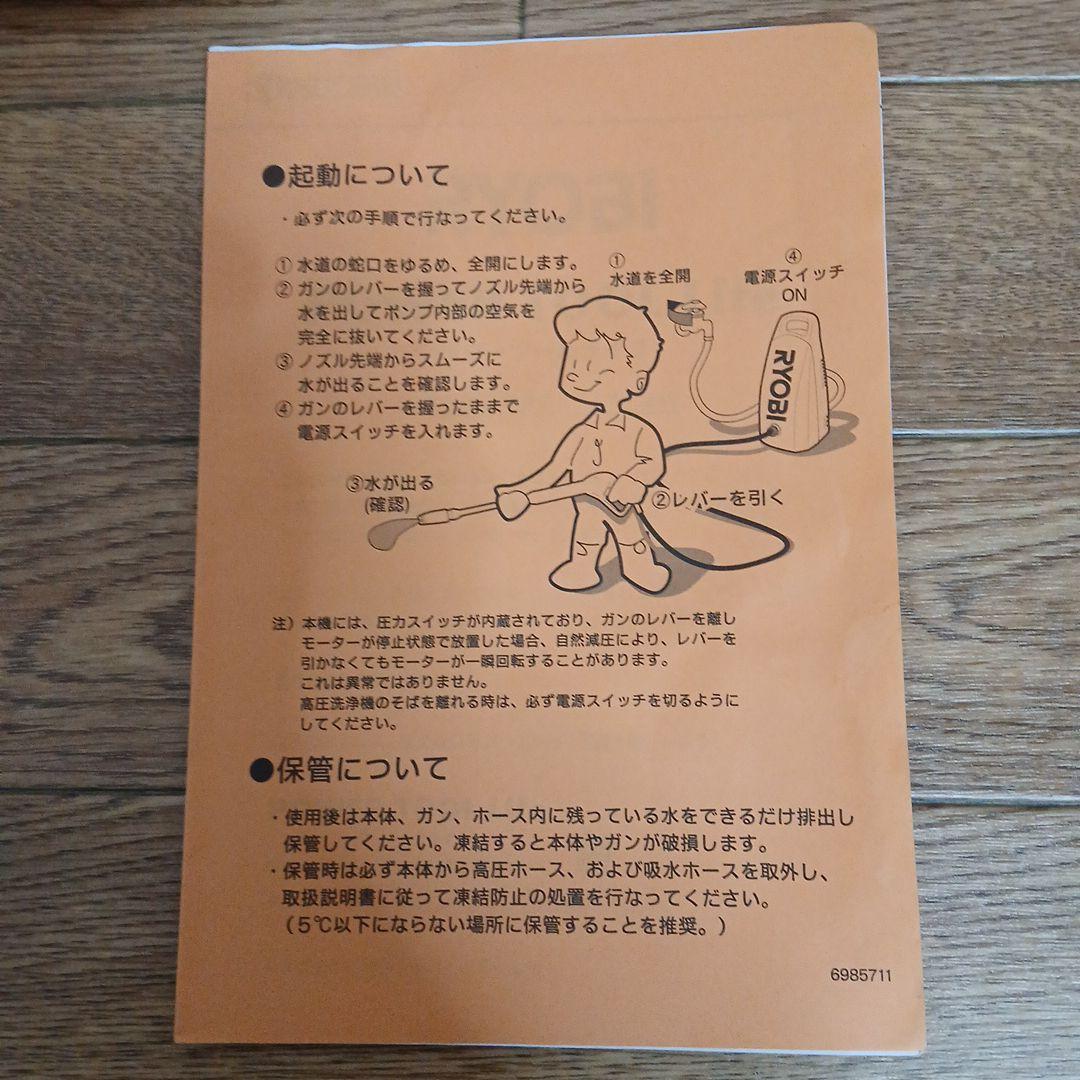 ●起動について
・必ず次の手順で行なってください。
① 水道の蛇口をゆるめ、全開にします。
② ガンのレバーを握ってノズル先端から
水を出してポンプ内部の空気を
完全に抜いてください。
③ ノズル先端からスムーズに
水が出ることを確認します。
④ ガンのレバーを握ったままで
電源スイッチを入れます。
①
水道を全開
④
電源スイッチ
ON
RYOBI
③水が出る
(確認)
②レバーを引く
注）本機には、圧力スイッチが内蔵されており、ガンのレバーを離し
モーターが停止状態で放置した場合、自然減圧により、レバーを
引かなくてもモーターが一瞬回転することがあります。
これは異常ではありません。
高圧洗浄機のそばを離れる時は、必ず電源スイッチを切るように
してください。
●保管について
・使用後は本体、ガン、ホース内に残っている水をできるだけ排出し
保管してください。凍結すると本体やガンが破損します。
・保管時は必ず本体から高圧ホース、および吸水ホースを取外し、
取扱説明書に従って凍結防止の処置を行なってください。
（5℃以下にならない場所に保管することを推奨。）
6985711